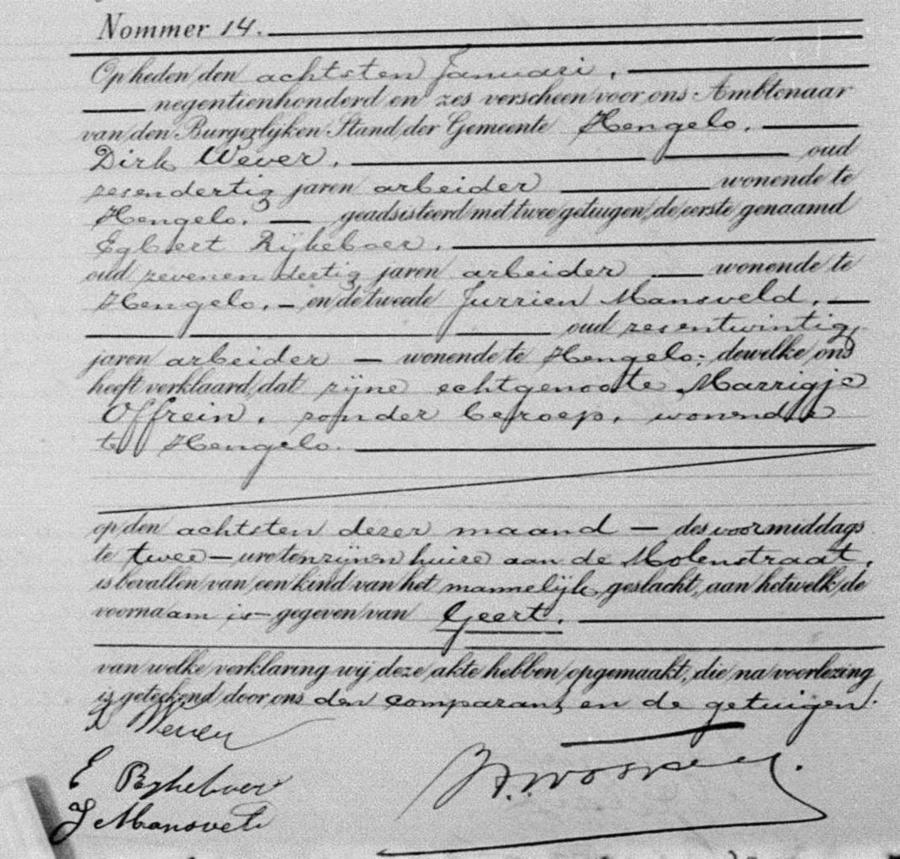 Nommer 14.
Op heden den achtsten Januari,
negentienhonderd en zes verscheen voor ons Ambtenaar
van den Burgerlijken Stand der Gemeente Hengelo,
Dirk Wever, oud
zesendertig jaren arbeider wonende te
Hengelo, geadsisteerd met twee getuigen, de eerste genaamd
Egbert Rijkeboer,
oud zevenendertig jaren arbeider wonende te
Hengelo, en de tweede Jurrien Mansveld,
oud zesentwintig
jaren arbeider wonende te Hengelo; dewelke ons
heeft verklaard, dat zijne echtgenoote Marrigje
Offrein, zonder beroep, wonende
te Hengelo.
op den achtsten dezer maand des voormiddags
te twee ure ten zijnen huize aan de Molenstraat,
is bevallen van een kind van het mannelijk geslacht, aan hetwelk de
voornaam is gegeven van Geert.
van welke verklaring wij deze akte hebben opgemaakt, die na voorlezing
is geteekend door ons den comparant en de getuigen.
D Wever
E Rijkeboer
J Mansvelt